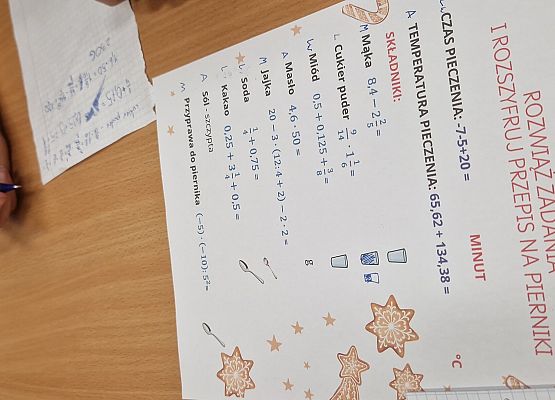 ROZWIĄŻ ZADANIA
I ROZSZYFRUJ PRZEPIS NA PIERNIKI
CZAS PIECZENIA: -7·5+20 = MINUT
A TEMPERATURA PIECZENIA: 65,62 + 134,38 = °C
SKŁADNIKI:
M Mąka 8,4 − 2 2/5
L Cukier puder 9/14 · 1 1/6 =
W Miód 0,5 + 0,125 + 3/8 =
A Masło 4,6 · 50 = g
M Jajka 20 − 3 · (12:4 + 2) − 2 · 2 =
L Soda 1/4 + 0,75 =
L Kakao 0,25 + 3 1/4 + 0,5 =
A Sól - szczypta
M Przyprawa do piernika (−5) · (−10) : 5² =